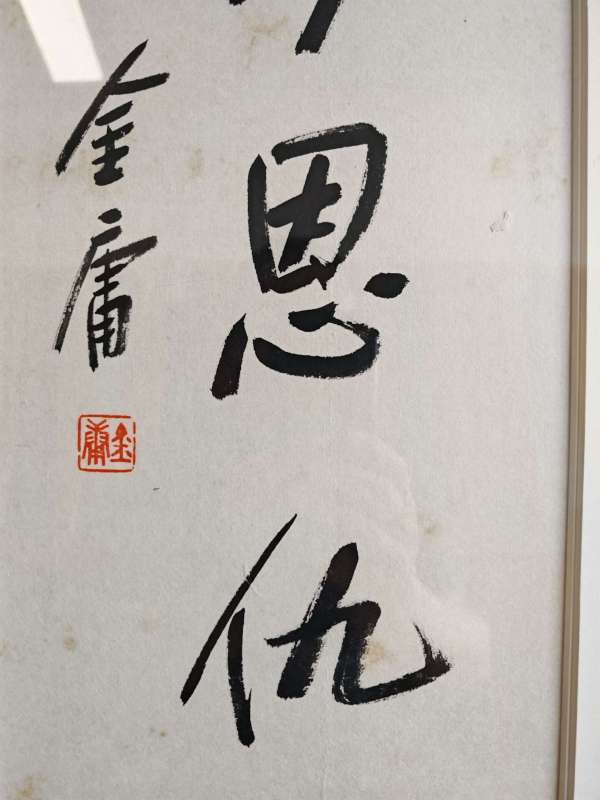 恩仇
金庸
金庸